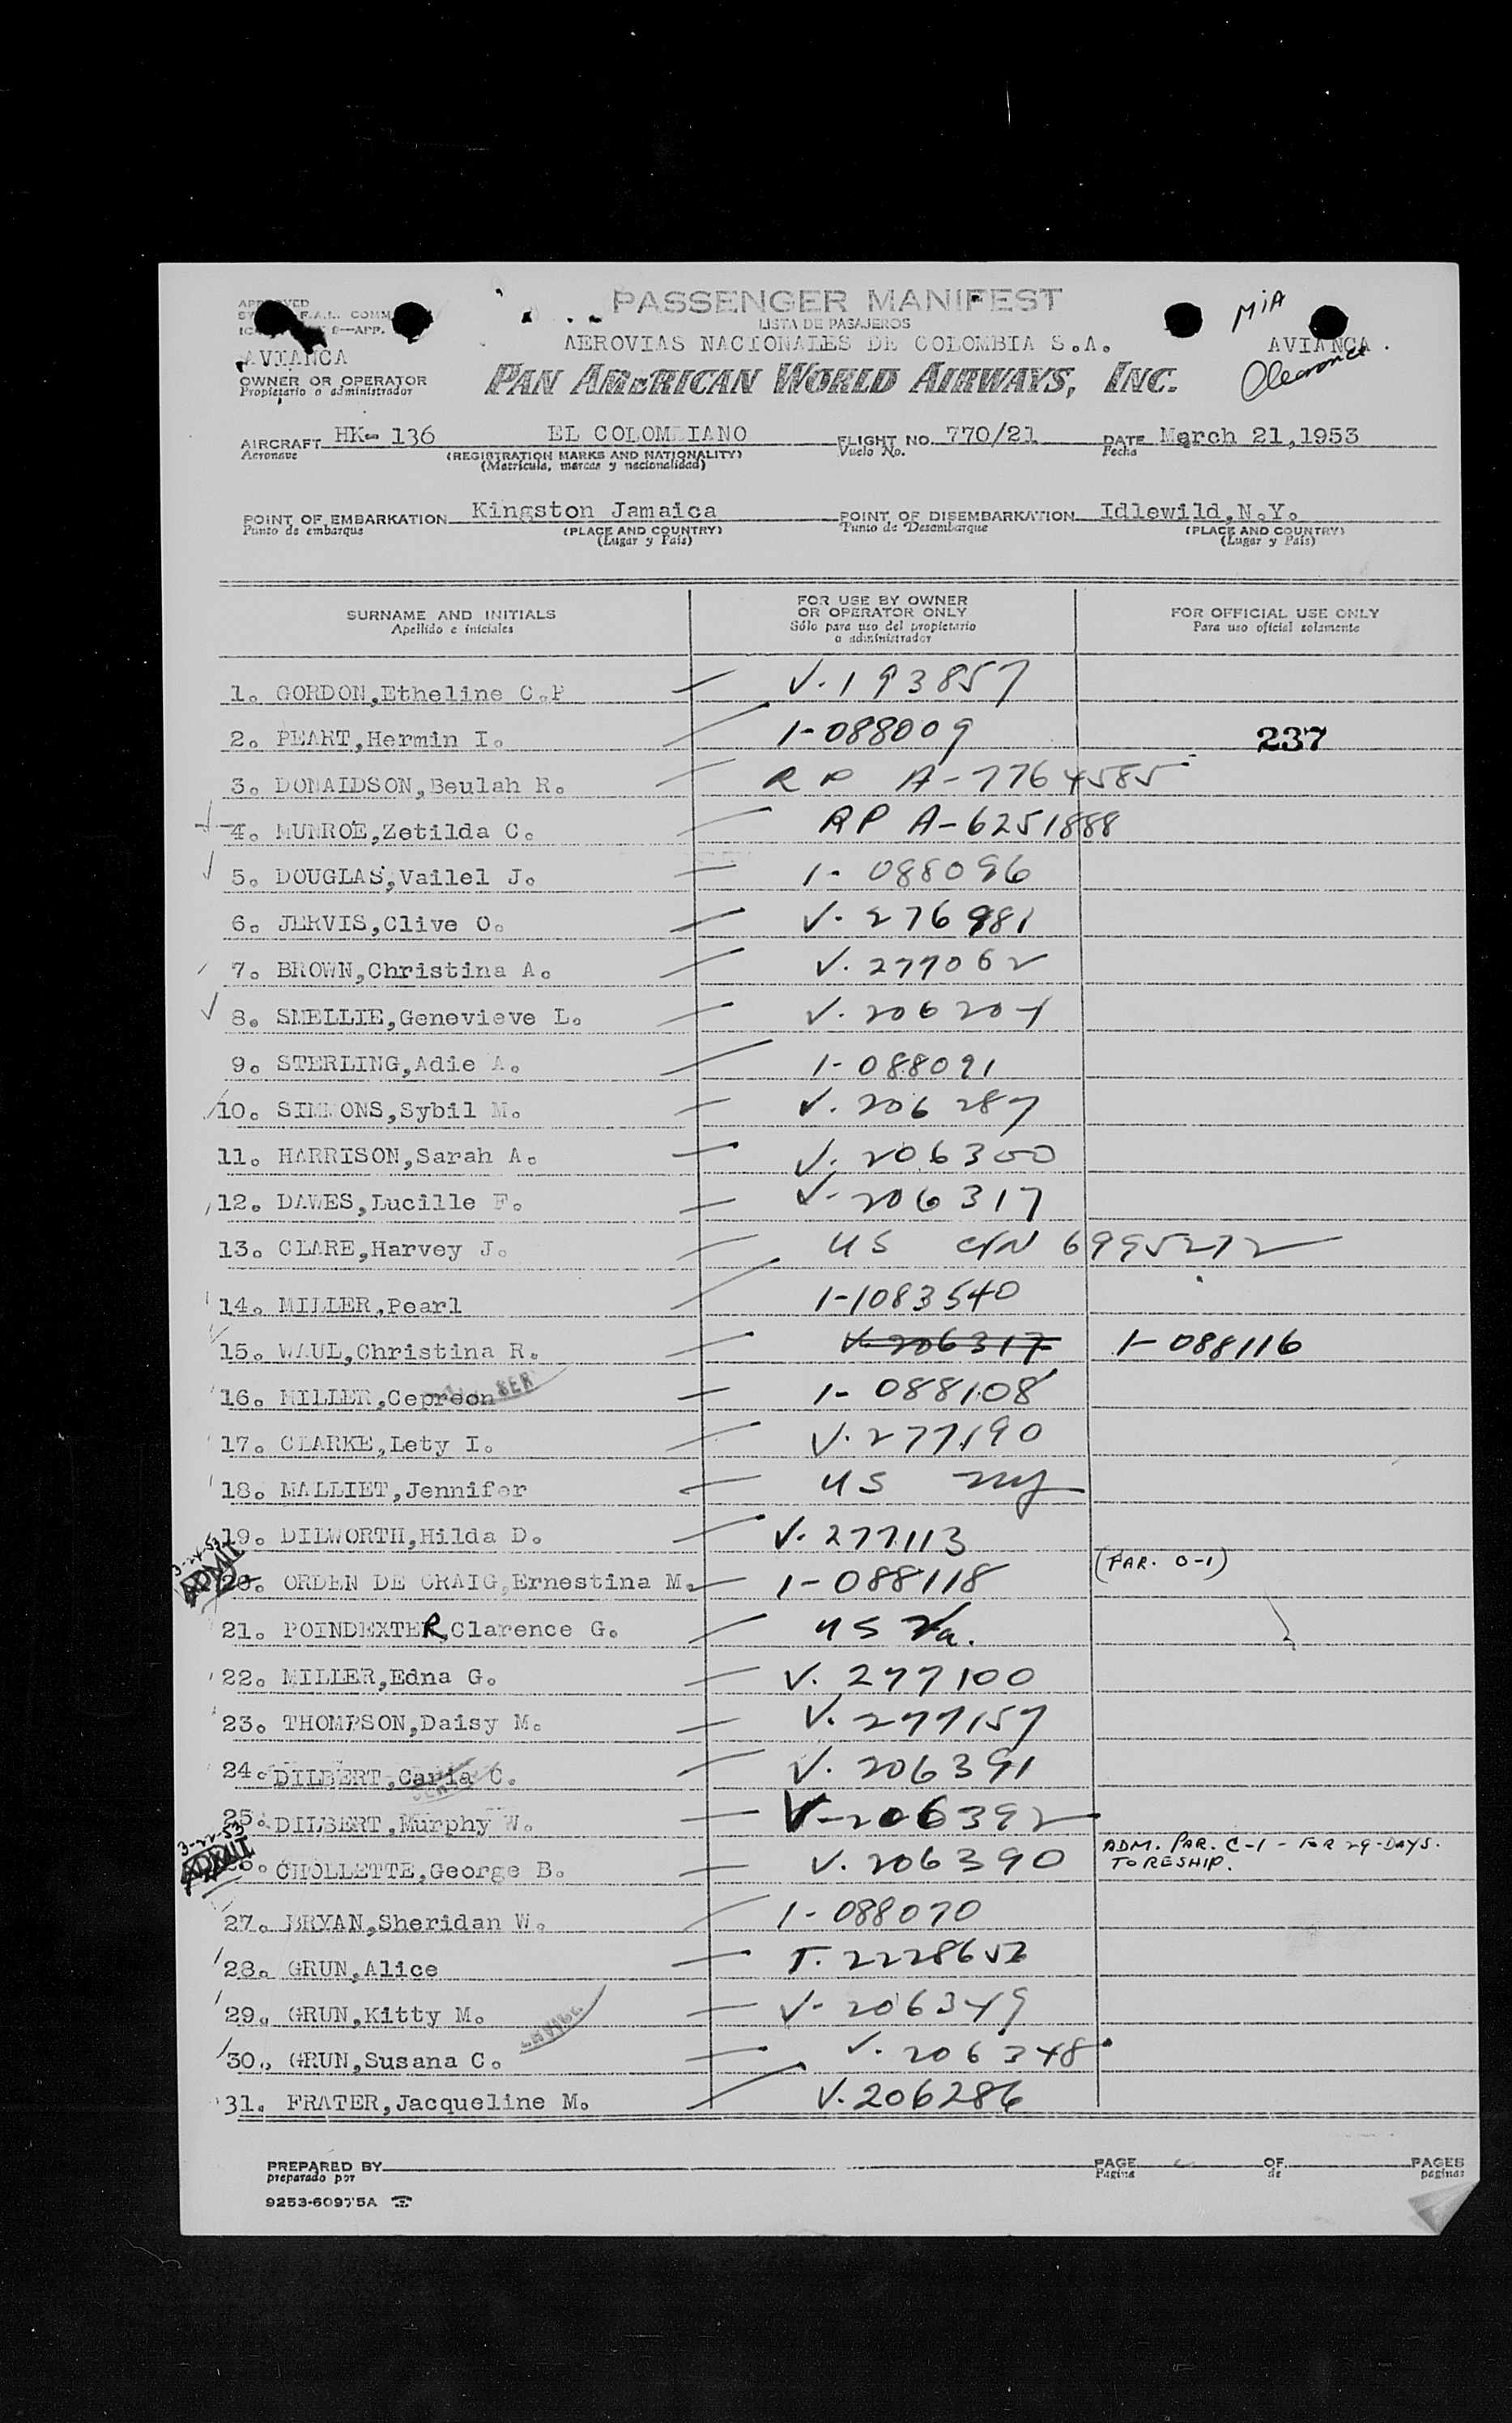 PASSENGER MANIFEST
LISTA DE PASAJEROS
MIA
AEROVIAS NACIONALES DE COLOMBIA S.A.
AVIANCA
AVIANCA
OWNER OR OPERATOR
Propietario o administrador
PAN AMERICAN WORLD AIRWAYS, INC.
AIRCRAFT HK- 136 EL COLOMBIANO FLIGHT NO. 770/21 DATE March 21,1953
Aeronave (REGISTRATION MARKS AND NATIONALITY) Vuelo No. Fecha
(Matrícula, marcas y nacionalidad)
POINT OF EMBARKATION Kingston Jamaica POINT OF DISEMBARKATION Idlewild,N.Y.
Punto de embarque (PLACE AND COUNTRY) Punto de Desembarque (PLACE AND COUNTRY)
(Lugar y País) (Lugar y País)
SURNAME AND INITIALS FOR USE BY OWNER OR OPERATOR ONLY FOR OFFICIAL USE ONLY
Apellido e iniciales Sólo para uso del propietario o administrador Para uso oficial solamente
1. GORDON,Etheline C.P V.193857
2. PEART,Hermin I. 1-088009 237
3. DONALDSON,Beulah R. RP A-7764585
4. MUNROE,Zetilda C. RP A-6251888
5. DOUGLAS,Vailel J. 1-088096
6. JERVIS,Clive O. V.276981
7. BROWN,Christina A. V.277062
8. SMELLIE,Genevieve L. V.206204
9. STERLING,Adie A. 1-088091
10. SIMMONS,Sybil M. V.206287
11. HARRISON,Sarah A. V.206300
12. DAWES,Lucille F. V-206317
13. CLARE,Harvey J. US C/N 6995272
14. MILLER,Pearl 1-1083540
15. WAUL,Christina R. V-206317 1-088116
16. MILLER,Cepreon 1-088108
17. CLARKE,Lety I. V.277190
18. MALLIET,Jennifer US NY
19. DILWORTH,Hilda D. V.277113
3-24-53
ADMIT
20. ORDEN DE CRAIG,Ernestina M. 1-088118 (PAR. C-1)
21. POINDEXTER,Clarence G. US Va.
22. MILLER,Edna G. V.277100
23. THOMPSON,Daisy M. V.277157
24. DILBERT,Caria C. V.206391
25. DILBERT,Murphy W. V-206392
3-22-53
ADMIT
26. CHOLLETTE,George B. V.206390 ADM. PAR. C-1 - FOR 29-DAYS.
TO RESHIP.
27. BRYAN,Sheridan W. 1-088070
28. GRUN,Alice T.2228652
29. GRUN,Kitty M. V-206349
30. GRUN,Susana C. V.206348
31. FRATER,Jacqueline M. V.206286
PREPARED BY PAGE OF PAGES
preparado por Página de páginas
9253-60975A